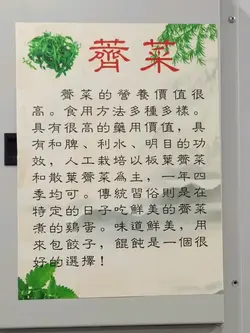 薺菜
薺菜的營養價值很
高。食用方法多種多樣。
具有很高的藥用價值，具
有和脾、利水、明目的功
效，人工栽培以板葉薺菜
和散葉薺菜為主，一年四
季均可。傳統習俗則是在
特定的日子吃鮮美的薺菜
煮的雞蛋。味道鮮美，用
來包餃子，餛飩是一個很
好的選擇！